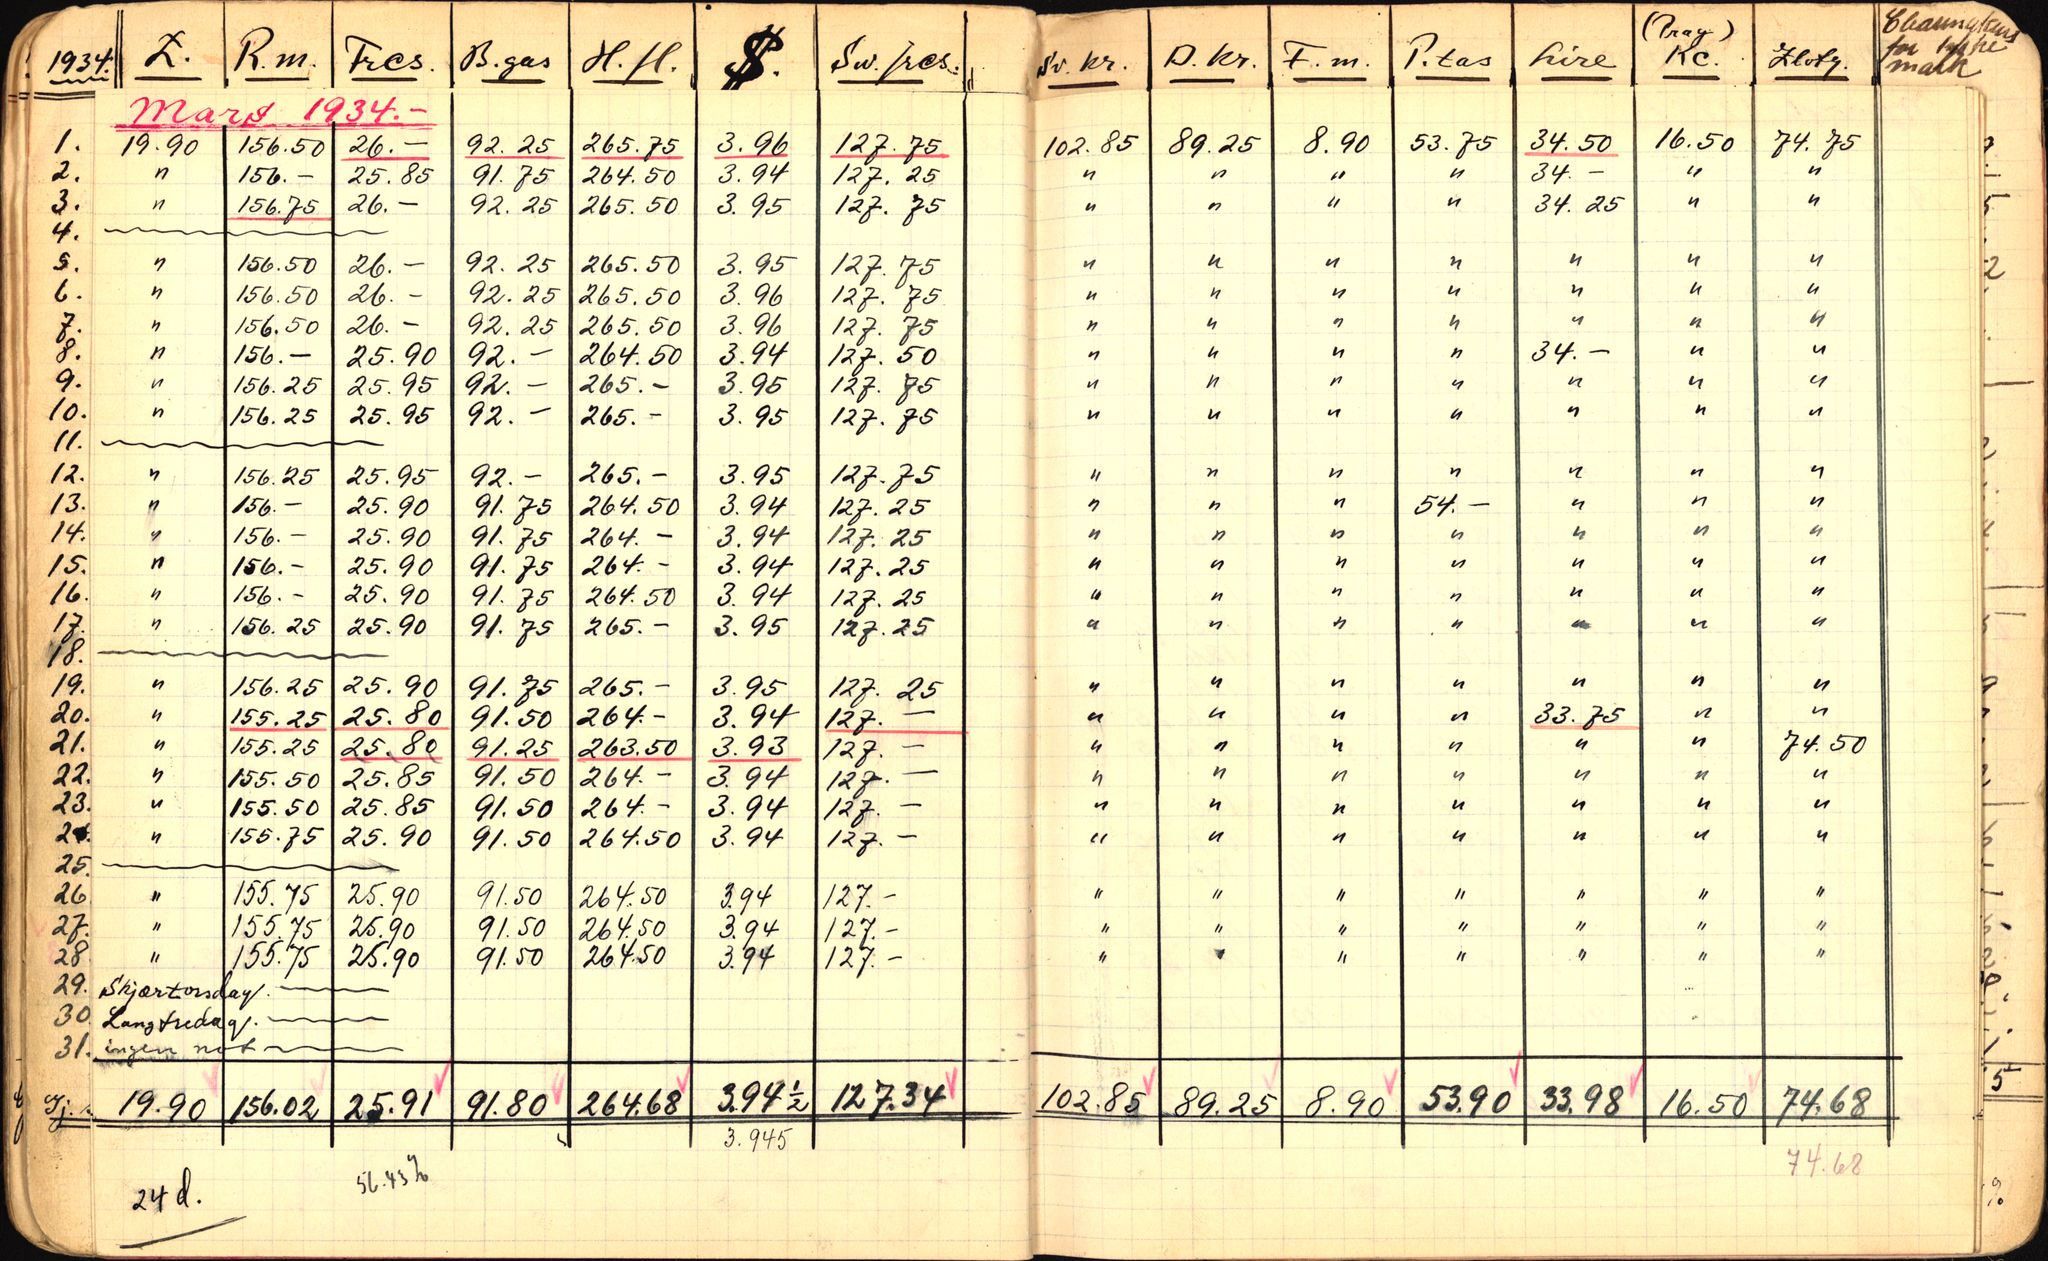 1934. £. R.m. Frcs. B.gas H.fl. $. Sw.frcs. Sv.kr. D.kr. F.m. P.tas Lire (Prag) Kc. Zloty. Clearingkurs for tyske mark
Mars 1934.-
1. 19.90 156.50 26.- 92.25 265.75 3.96 127.75 102.85 89.25 8.90 53.75 34.50 16.50 74.75
2. " 156.- 25.85 91.75 264.50 3.94 127.25 " " " " 34.- " "
3. " 156.75 26.- 92.25 265.50 3.95 127.75 " " " " 34.25 " "
4.
5. " 156.50 26.- 92.25 265.50 3.95 127.75 " " " " " " "
6. " 156.50 26.- 92.25 265.50 3.96 127.75 " " " " " " "
7. " 156.50 26.- 92.25 265.50 3.96 127.75 " " " " " " "
8. " 156.- 25.90 92.- 264.50 3.94 127.50 " " " " 34.- " "
9. " 156.25 25.95 92.- 265.- 3.95 127.75 " " " " " " "
10. " 156.25 25.95 92.- 265.- 3.95 127.75 " " " " " " "
11.
12. " 156.25 25.95 92.- 265.- 3.95 127.75 " " " " " " "
13. " 156.- 25.90 91.75 264.50 3.94 127.25 " " " 54.- " " "
14. " 156.- 25.90 91.75 264.- 3.94 127.25 " " " " " " "
15. " 156.- 25.90 91.75 264.- 3.94 127.25 " " " " " " "
16. " 156.- 25.90 91.75 264.50 3.94 127.25 " " " " " " "
17. " 156.25 25.90 91.75 265.- 3.95 127.25 " " " " " " "
18.
19. " 156.25 25.90 91.75 265.- 3.95 127.25 " " " " " " "
20. " 155.25 25.80 91.50 264.- 3.94 127.- " " " " 33.75 " "
21. " 155.25 25.80 91.25 263.50 3.93 127.- " " " " " " 74.50
22. " 155.50 25.85 91.50 264.- 3.94 127.- " " " " " " "
23. " 155.50 25.85 91.50 264.- 3.94 127.- " " " " " " "
24. " 155.75 25.90 91.50 264.50 3.94 127.- " " " " " " "
25.
26 " 155.75 25.90 91.50 264.50 3.94 127.- " " " " " " "
27. " 155.75 25.90 91.50 264.50 3.94 127.- " " " " " " "
28 " 155.75 25.90 91.50 264.50 3.94 127.- " " " " " " "
29. Skjærtorsdag.
30. Langfredag.
31. ingen not
Gj.s. 19.90 156.02 25.91 91.80 264.68 3.94½ 127.34 102.85 89.25 8.90 53.90 33.98 16.50 74.68
3.945 74.68
24 d. 56.43%